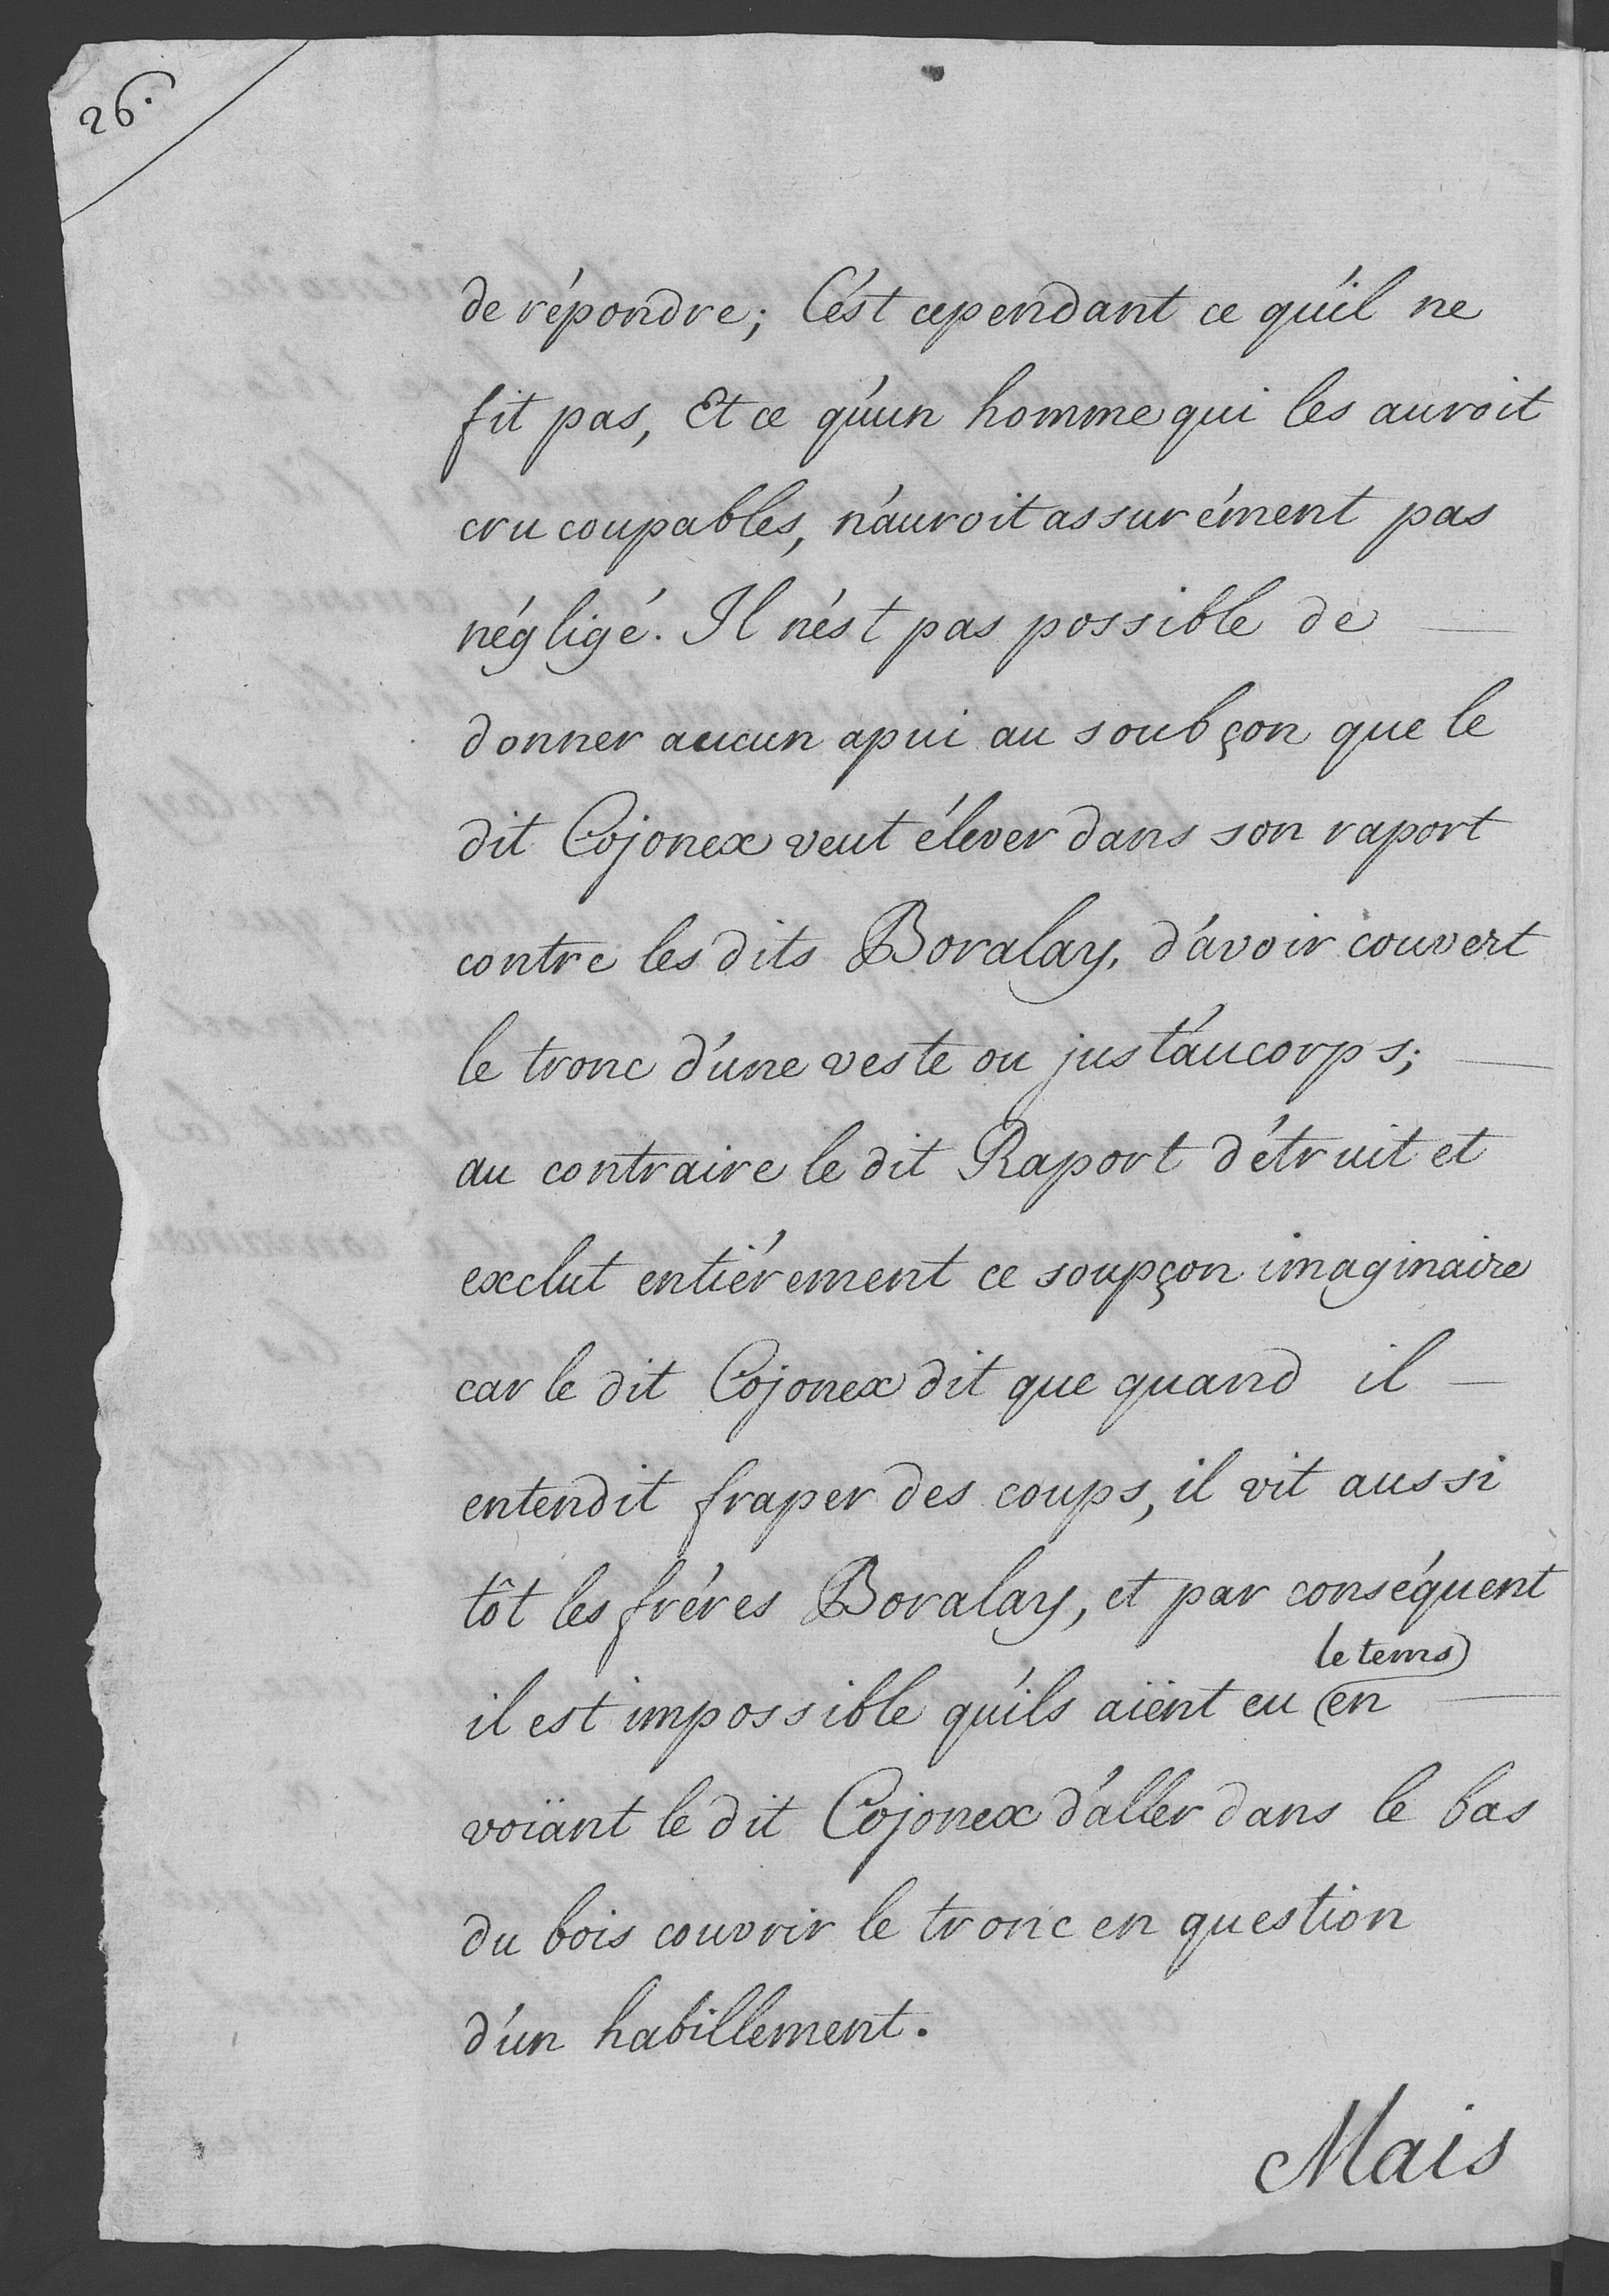 26.
de répondre; C'est cependant ce qu'il ne
fit pas, Et ce qu'un homme qui les auroit
cru coupables, n'auroit assurément pas
négligé. Il n'est pas possible de
donner aucun apui au soubçon que le
dit Cojonex veut élever dans son raport
contre les dits Boralay, d'avoir couvert
le tronc d'une veste ou just'aucorps;
au contraire le dit Raport détruit et
exclut entiérement ce soupçon imaginaire
car le dit Cojonex dit que quand il
entendit fraper des coups, il vit aussi
tôt les fréres Boralay, et par conséquent
le tems
il est impossible qu'ils aïent eu en
voïant le dit Cojonex d'aller dans le bas
du bois couvrir le tronc en question
d'un habillement.
Mais